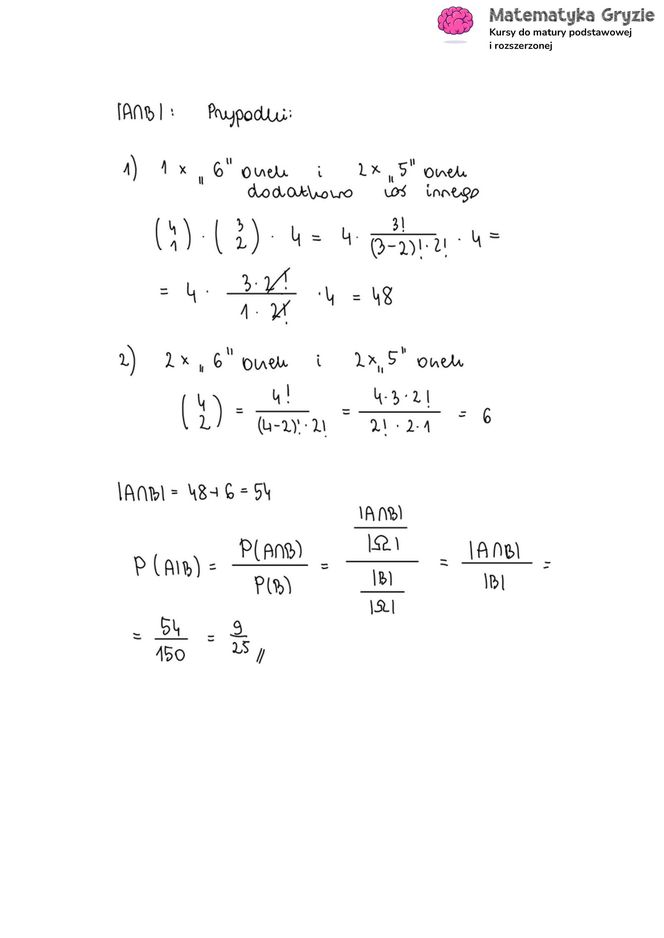 Matematyka Gryzie
Kursy do matury podstawowej
i rozszerzonej
|A∩B|: Przypadki:
1) 1 × „6" oczek i 2 × „5" oczek
dodatkowo coś innego
(4 1) · (3 2) · 4 = 4 · 3!/((3-2)! · 2!) · 4 =
= 4 · (3 · 2!)/(1 · 2!) · 4 = 48
2) 2 × „6" oczek i 2 × „5" oczek
(4 2) = 4!/((4-2)! · 2!) = (4 · 3 · 2!)/(2! · 2 · 1) = 6
|A∩B| = 48 + 6 = 54
P(A|B) = P(A∩B)/P(B) = (|A∩B|/|Ω|)/(|B|/|Ω|) = |A∩B|/|B| =
= 54/150 = 9/25 //